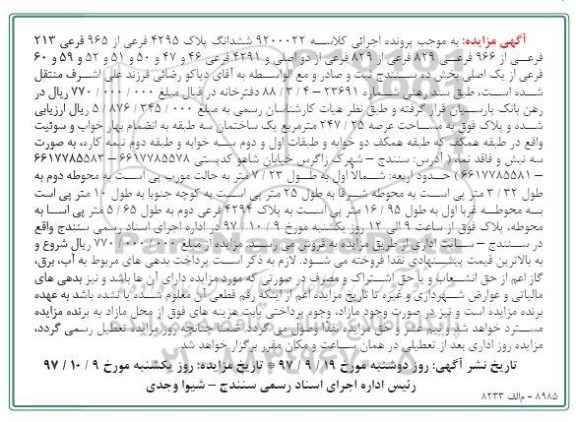 آگهی مزایده: به موجب پرونده اجرائی کلاسه ۹۲۰۰۰۲۲ ششدانگ پلاک ۴۲۹۵ فرعی از ۹۶۵ فرعی ۲۱۳
فرعی از ۹۶۶ فرعی ۸۲۹ فرعی از ۸۲۹ فرعی از دو اصلی و ۴۲۹۱ فرعی ۴۶ و ۴۷ و ۵۰ و ۵۱ و ۵۲ و ۵۹ و ۶۰
فرعی از یک اصلی بخش ده سنندج ثبت و صادر و مع الواسطه به آقای دیاکو رضائی فرزند علی اشرف منتقل
شده است، طبق سند رهنی شماره ۲۳۶۹۱ – ۴ / ۳ / ۸۸ دفترخانه در قبال مبلغ ۰۰۰ / ۰۰۰ / ۷۷۰ ریال در
رهن بانک پارسیان قرار گرفته و طبق نظر هیات کارشناسان رسمی به مبلغ ۰۰۰ / ۲۴۵ / ۸۷۶ / ۵ ریال ارزیابی
شده و پلاک فوق به مساحت عرصه ۲۵ / ۲۴۷ مترمربع یک ساختمان سه طبقه به انضمام بهار خواب و سوئیت
واقع در طبقه همکف که طبقه همکف دو خوابه و طبقات اول و دوم سه خوابه و طبقه دوم نیمه کاره، به صورت
سه نبش و فاقد نما، ( آدرس: سنندج – شهرک زاگرس خیابان شاهو کدپستی ۶۶۱۷۷۸۵۵۷۸ – ۶۶۱۷۷۸۵۵۸۳
– ۶۶۱۷۷۸۵۵۸۱ ) حدود اربعه: شمالاً اول به طول ۲۳ / ۷ متر به حالت مورب پی است به محوطه دوم به
طول ۳۲ / ۳ متر پی است به محوطه شرقاً به طول ۲۵ متر پی است به کوچه جنوباً به طول ۱۰ متر پی است
به محوطه غرباً اول به طول ۹۵ / ۱۶ متر پی است به پلاک ۴۲۹۴ فرعی دوم به طول ۶۵ / ۵ متر پی است به
محوطه، پلاک فوق از ساعت ۹ الی ۱۲ روز یکشنبه مورخ ۹ / ۱۰ / ۹۷ در اداره اجرای اسناد رسمی سنندج واقع
در سنندج – سایت اداری از طریق مزایده به فروش می رسد. مزایده از مبلغ ۰۰۰ / ۰۰۰ / ۷۷۰ ریال شروع و
به بالاترین قیمت پیشنهادی نقداً فروخته می شود. لازم به ذکر است پرداخت بدهی های مربوط به آب، برق،
گاز اعم از حق انشعاب و یا حق اشتراک و مصرف در صورتی که مورد مزایده دارای آن ها باشد و نیز بدهی های
مالیاتی و عوارض شهرداری و غیره تا تاریخ مزایده اعم از اینکه رقم قطعی آن معلوم شده یا نشده باشد به عهده
برنده مزایده است و نیز در صورت وجود مازاد، وجوه پرداختی بابت هزینه های فوق از محل مازاد به برنده مزایده
مسترد خواهد شد و نیم عشر و حق مزایده نقداً وصول می گردد. ضمناً چنانچه روز مزایده تعطیل رسمی گردد،
مزایده روز اداری بعد از تعطیلی در همان ساعت و مکان مقرر برگزار خواهد شد.
تاریخ نشر آگهی: روز دوشنبه مورخ ۱۹ / ۹ / ۹۷ * تاریخ مزایده: روز یکشنبه مورخ ۹ / ۱۰ / ۹۷
رئیس اداره اجرای اسناد رسمی سنندج – شیوا وجدی
۸۹۸۵ – م الف ۸۲۳۳